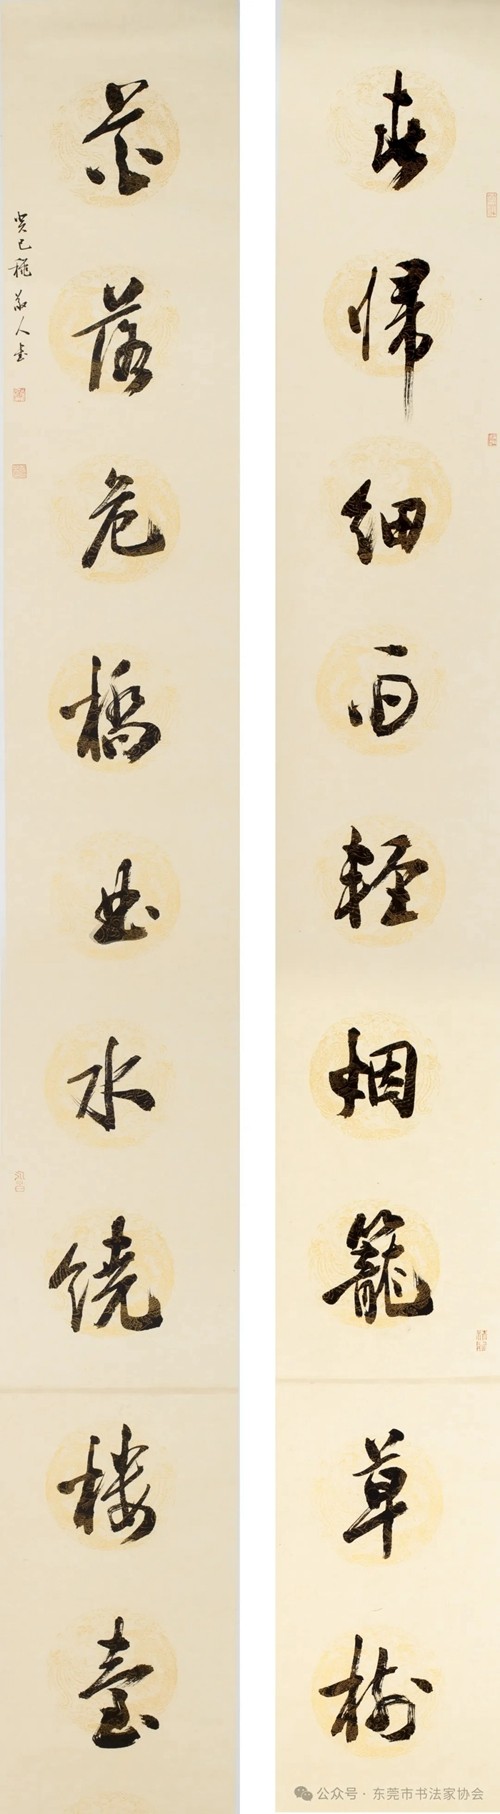 春歸細雨輕烟籠草樹
花落危橋曲水饒樓臺
癸巳穐人書
公众号 · 东莞市书法家协会